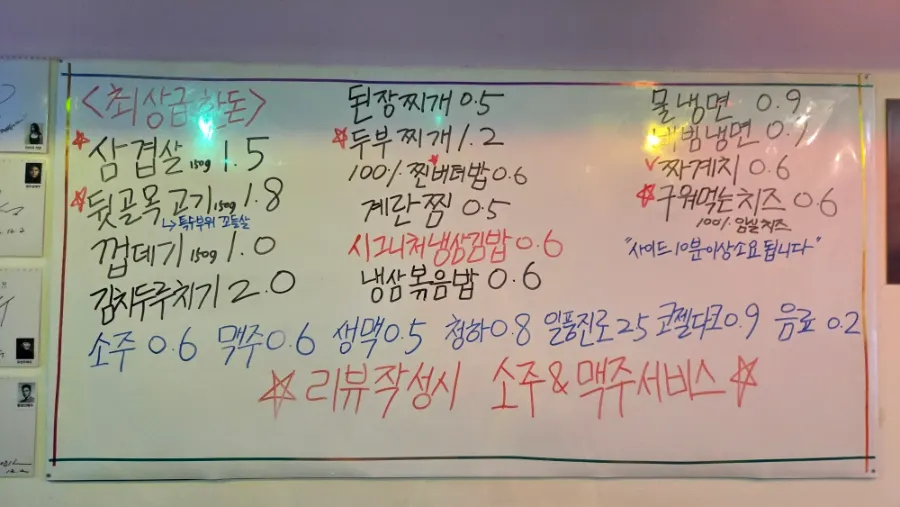 <최상급한돈>
삼겹살 150g 1.5
뒷골목고기 150g 1.8
↳특수부위 꼬들살
껍데기 150g 1.0
김치두루치기 2.0
된장찌개 0.5
두부찌개 1.2
100% 찐버터밥 0.6
계란찜 0.5
시그니처냉삼김밥 0.6
냉삼볶음밥 0.6
물냉면 0.9
비빔냉면 0.9
짜계치 0.6
구워먹는치즈 0.6
100% 임실치즈
"사이드 10분이상소요됩니다"
소주 0.6 맥주 0.6 생맥 0.5 청하 0.8 일품진로 25 코젤다크 0.9 음료 0.2
☆리뷰작성시 소주&맥주서비스☆